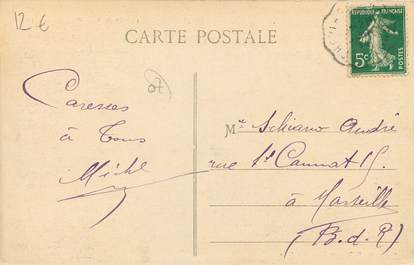 12 €
CARTE POSTALE
RÉPUBLIQUE FRANÇAISE
5c
POSTES
07
Caresses
à Tous
Michel
Mr. Schiano André
rue St Cannat 15
à Marseille
(B. d. R)